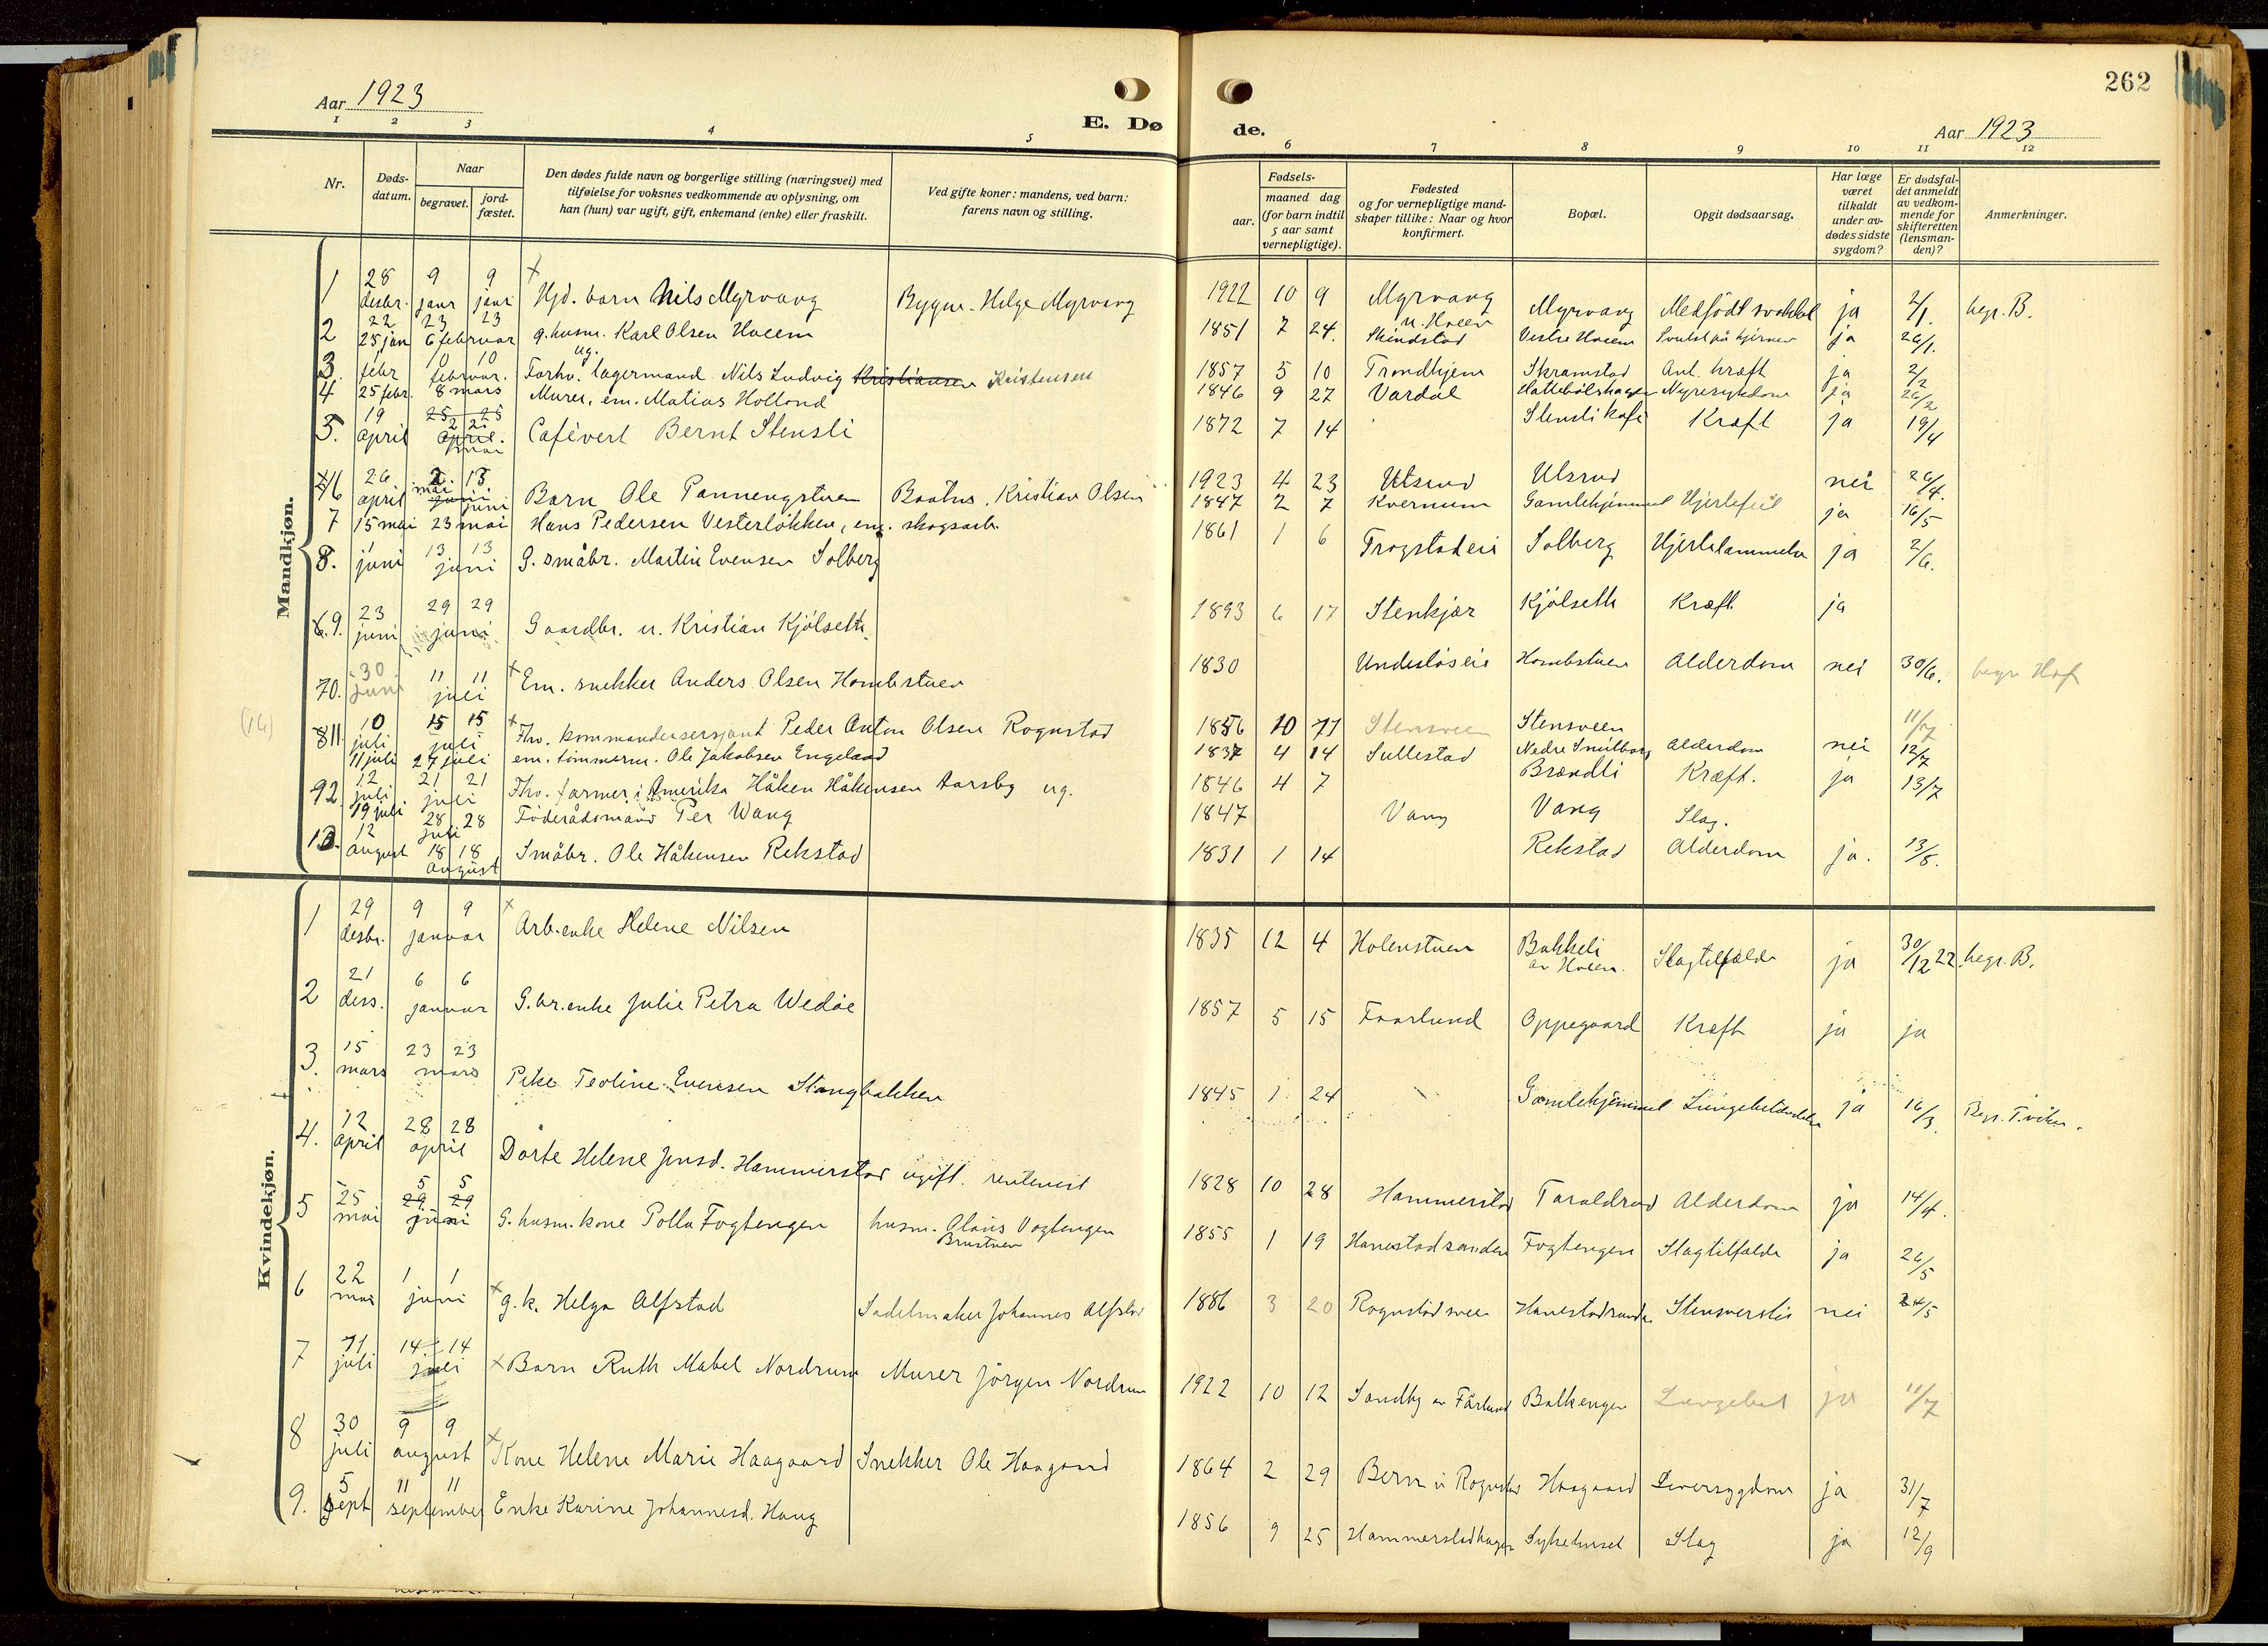 Aar 1923
262
Aar 1923
E. Dø
de.
1 2 3 4 5
6 7 8 9 10 11 12
Nr.
Døds-
datum.
Naar
begravet.
jord-
fæstet.
Den dødes fulde navn og borgerlige stilling (næringsvei) med
tilføielse for voksnes vedkommende av oplysning, om
han (hun) var ugift, gift, enkemand (enke) eller fraskilt.
Ved gifte koner: mandens, ved barn:
farens navn og stilling.
Fødsels-
aar.
maaned dag
(for barn indtil
5 aar samt
vernepligtige).
Fødested
og for vernepligtige mand-
skaper tillike: Naar og hvor
konfirmert.
Bopæl.
Opgit dødsaarsag.
Har læge
været
tilkaldt
under av-
dødes sidste
sygdom?
Er dødsfal-
det anmeldt
av vedkom-
mende for
skifteretten
(lensman-
den)?
Anmerkninger.
Mandkjøn.
1 28 desbr. 9 9 janr Hjd. barn Nils Myrvang Byggm. Helge Myrvang 1922 10 9 Myrvang u. Hveem Myrvang Medfödt svakhet ja 2/1. begr. B.
2 25 jan 6 februar g. husm. Karl Olsen Hveem 1851 7 24. Skindstad Vestre Hveem Svulst på hjernen ja 26/1.
3. 1 febr 10 10 februar. Forhv. lagermand ug. Nils Ludvig Kristiansen Kristensen 1857 5 10 Trondhjem Skramstad Ant. kræft ja 2/2
4 25 febr. 8 mars Murer, em. Matias Holland 1846 9 27 Vardal Nyresykdom ja 26/2
5. 19 april 25 25 april. 2 2 mai Cafévert Bernt Stensli 1872 7 14 Stensli kafe Kræft ja 19/4
6 26 april mai juni Barn Ole Pannengstuen Baatus. Kristian Olsen 1923 4 23 Ulsrud Ulsrud nei 26/4.
7 15 mai 23 mai Hans Pedersen Vesterløkken, em. skogsarb. 1847 2 7 Kvernum Gamlehjemmet Hjertefeil ja 16/5
8. 1 juni 13 13 juni G. småbr. Martin Evensen Solberg 1861 1 6 Trogstadeie Solberg Hjertelammelse ja 2/6.
9. 23 juni 29 29 juni Gaardbr. u. Kristian Kjölseth 1893 6 17 Stenkjær Kjölseth Kræft. ja
10. 30 juni 11 11 juli Em. snekker Anders Olsen Hombstuen 1830 Undesløseie Hombstuen Alderdom nei 30/6. begr. Hof
(16)
11. 10 juli 15 15 juli Fhv. kommandersersjant Peder Anton Olsen Rognstad 1856 10 Stensveen Stensveen 11/7
11 juli 27 juli em. tömmerm. Ole Jakobsen Engeland 1837 4 14 Sullestad Nedre Smilberg Alderdom nei 12/7
12. 12 juli 21 21 juli Fhv. farmer i Amerika Håken Håkensen Aarsby ug. 1846 4 7 Brændli Kræft. ja 13/7
19 juli 28 28 juli Föderådsmand Per Wang 1847 Vang Vang Slag.
13. 12 august 18 18 august Småbr. Ole Håkensen Rekstad 1831 1 14 Rekstad Alderdom ja. 13/8.
Kvindekjøn.
1 29 desbr. 9 9 januar Arb.enke Helene Nilsen 1835 12 4 Holenstuen Bakkeli av Hveem. Slagtilfælde ja 30/12 22. begr. B.
2 21 dess. 6 6 januar G.br.enke Julie Petra Wedöe 1857 5 15 Faarlund Oppegaard Kræft ja ja
3. 15 mars 23 23 mars Pike Teoline Evensen Stangbakken 1845 1 24 Gamlehjemmet Lungebetændelse ja 16/3. Begr. T.viken.
4. 12 april 28 28 april Dorte Helene Jensd. Hammerstad ugift. rentenist 1828 10 28 Hammerstad Taraldrud Alderdom ja 14/4.
5 25 mai 5 5 29 29 juni G. husm. kone Polla Fogtengen husm. Olaus Vogtengen Brustuen 1855 1 19 Hanestadsanden Fogtengen Slagtilfælde ja 26/5
6 22 mai 1 1 juni g.k. Helga Alfstad Sadelmaker Johannes Alfstad 1886 3 20 Rognstadsveen Hanestadsanden nei 24/5
7 11 juli 14 14 juli Barn Ruth Mabel Nordrum Murer Jörgen Nordrum 1922 10 12 Sandby av Fårlund Balkengen Lungebet ja 11/7
8 30 juli 9 9 august Kone Helene Marie Haagaard Snekker Ole Haagaard 1864 2 29 Haagaard Leversygdom ja 31/7
9. 5 sept 11 11 september Enke Karine Johannesd. Haug 1856 9 25 Hammerstadhagen Sykehuset Slag ja 12/9